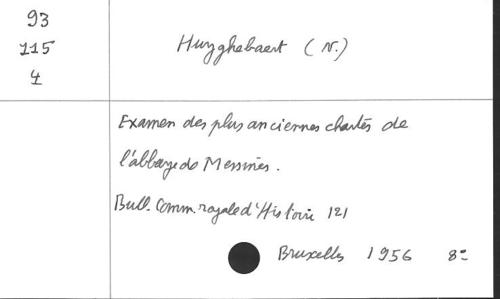 93
115
4
Huyghebaert (N.)
Examen des plus anciennes chartes de
l'abbaye de Messines.
Bull. Comm. royale d'Histoire 121
Bruxelles 1956 8º